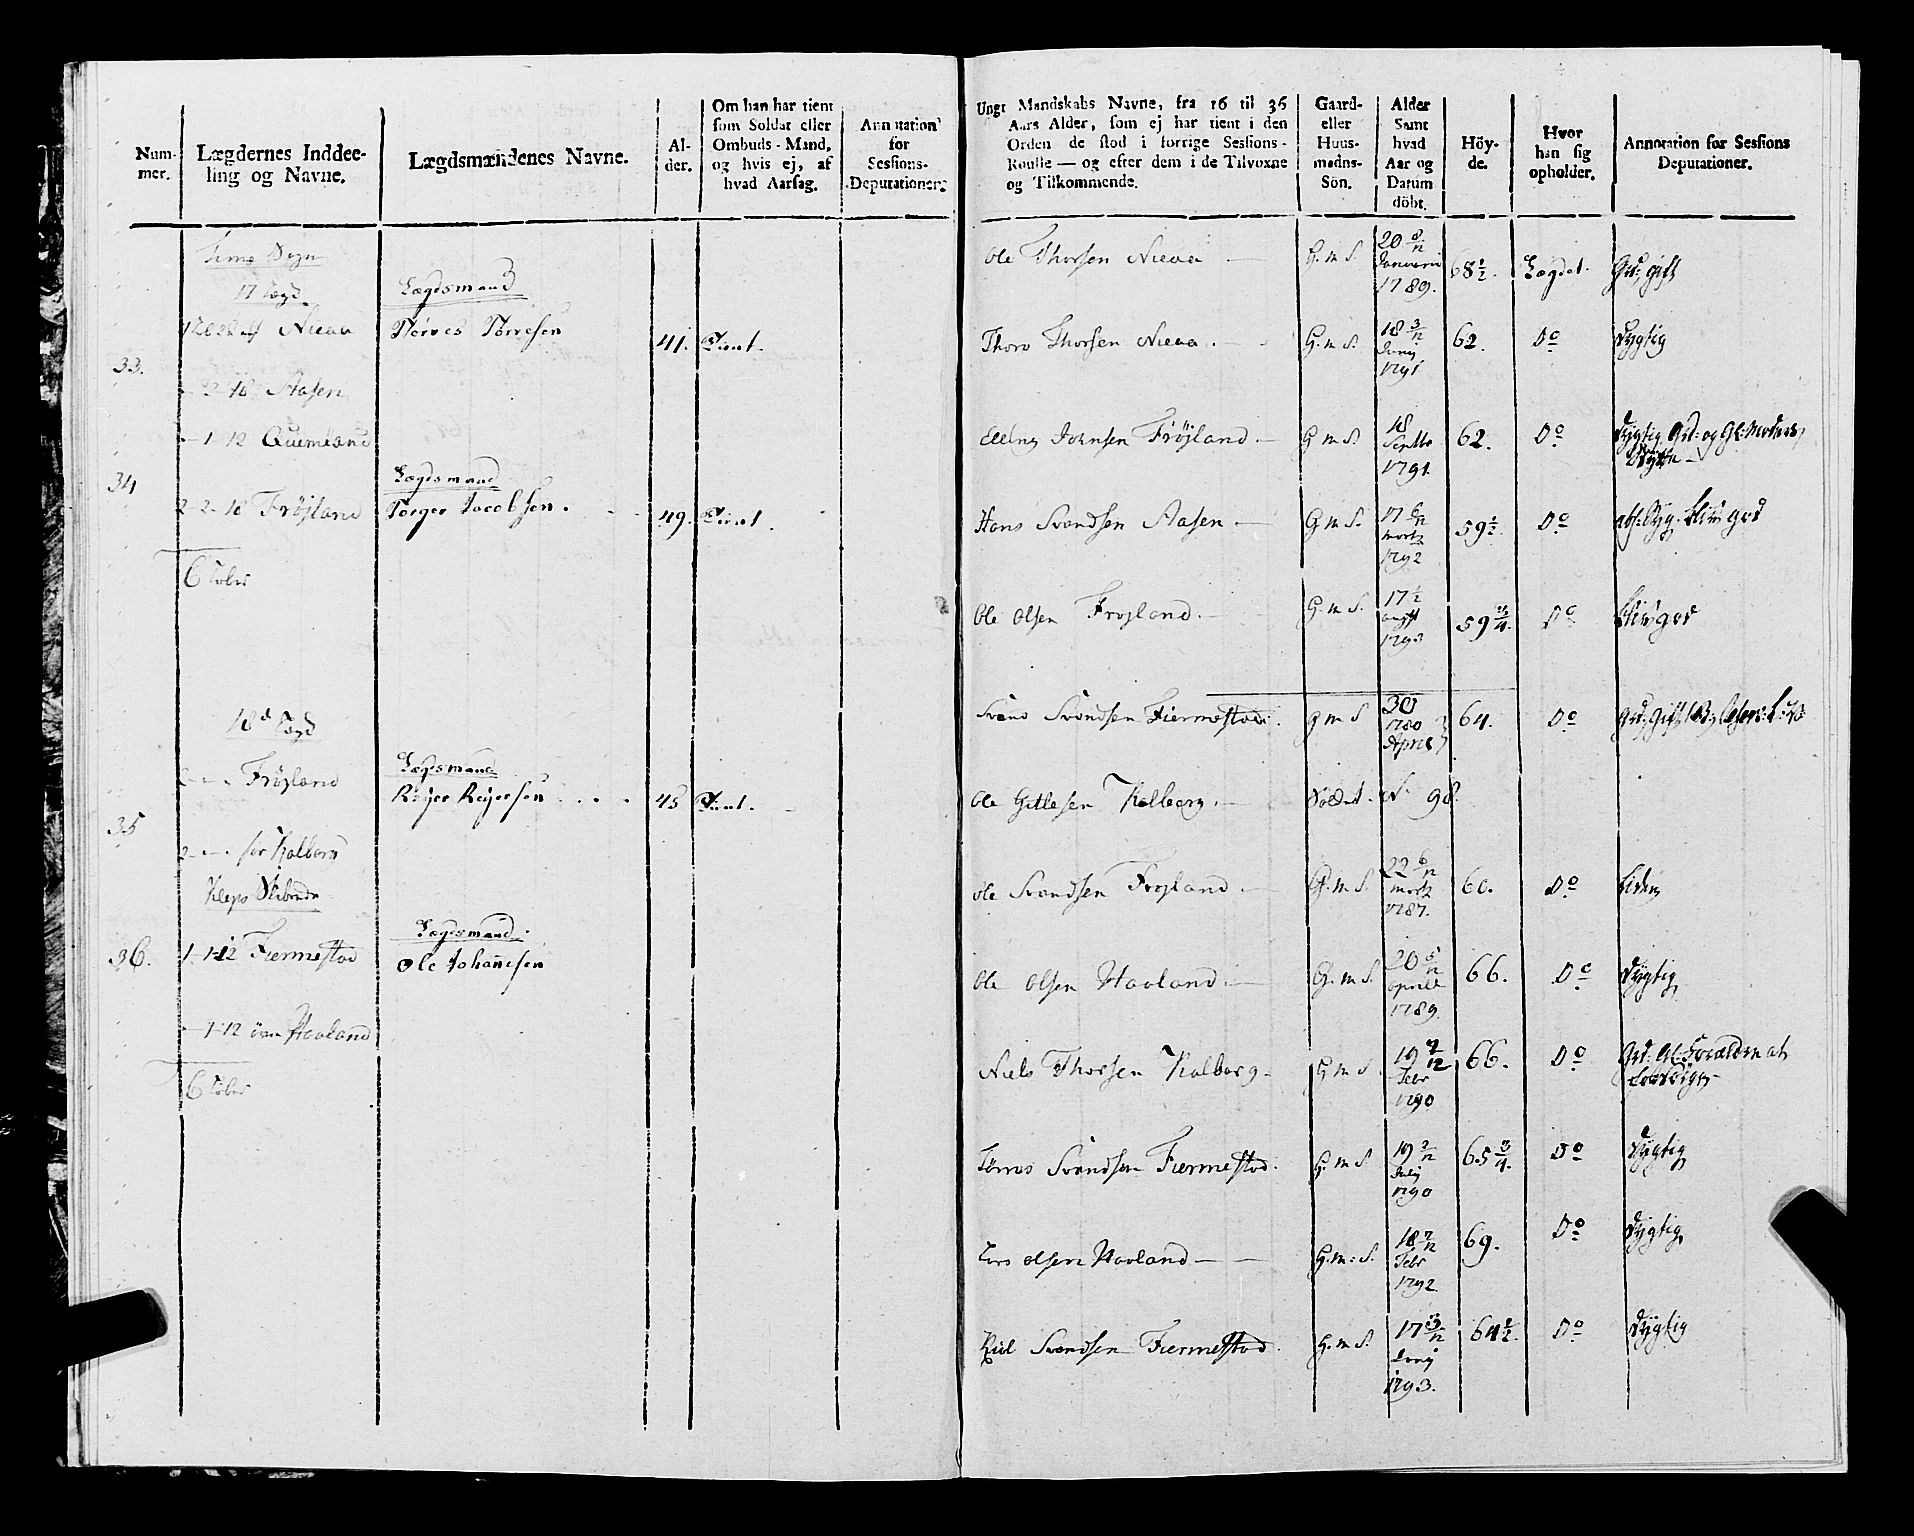 Num-
mer.
Lægdernes Inddee-
ling og Navne.
Lægdsmændenes Navne.
Al-
der.
Om han har tient
som Soldat eller
Ombuds-Mand,
og hvis ej, af
hvad Aarsag.
Annotation
for
Sessions-
Deputationen.
Time Sogn
17 Lægd
Lægdsmand
Nieaa
Tørres Tørresen
41. Tient.
33.
2-18 Aasen
1-12 Quernland
34
Lægdsmand
2-2-18 Frøjland
Torger Jacobsen.
49. Tient.
6 Lober
18d Lægd
Lægdsmand
Frøjland
Reyer Reyersen
45 Tient.
35
2 Kalberg
Kleps Skibrede
Lægdsmand
36. 1-1-12 Fiermestad
Ole Johannesen
1-12 Havland
6 Lober
Ungt Mandskabs Navne, fra 16 til 36
Aars Alder, som ej har tient i den
Orden de stod i forrige Sessions-
Roulle — og efter dem i de Tilvoxne
og Tilkommende.
Gaard-
eller
Huus-
mands-
Søn.
Alder
Samt
hvad
Aar og
Datum
döbt.
Höy-
de.
Hvor
han sig
opholder.
Annotation for Sessions
Deputationer.
Ole Thorsen Nieaa — G. m. S. 20 8/12 Januarii 1789. 68 1/2. Lægdet. Grd: gift
Thore Thorsen Nieaa. G. m. S. 18 3/12 1791 62. Do Dygtig
Elling Johnsen Frøjland — G m S. 18 Septbr 1791. 62. Do Dygtig Grd: og Gl: Moders
Støtte —
Hans Svendsen Aasen — G m S. 17 6/12 Martz 1792 59 1/2. Do
Ole Olsen Frøjland. G. m S. 17 1/2 1793 59 3/4. Do
Svend Svendsen Fiermestad. G m S 30 1780 April 64. Do
Ole Gitlesen Kalberg. — Soldat. No 98.
Ole Svendsen Frøjland — G. m S. 22 6/12 Martz 1787. 60. Do Liden
Ole Olsen Havland. — G. m. S. 20 5/12 Aprill 1789. 66. Do Dygtig
Niels Thorsen Kalberg — G m S. 19 7/12 Febr 1790 66. Do Grd: Gl. Forældre at
forsørge
Tørres Svendsen Fiermestad. G. m S 19 2/12 July 1790 65 3/4. Do Dygtig
Lars Olsen Havland — G. m: S. 18 7/12 Febr 1792 69. Do Dygtig
Svendsen Fiermestad. G. m S. 17 3/12 1793. 64 1/2. Do Dygtig